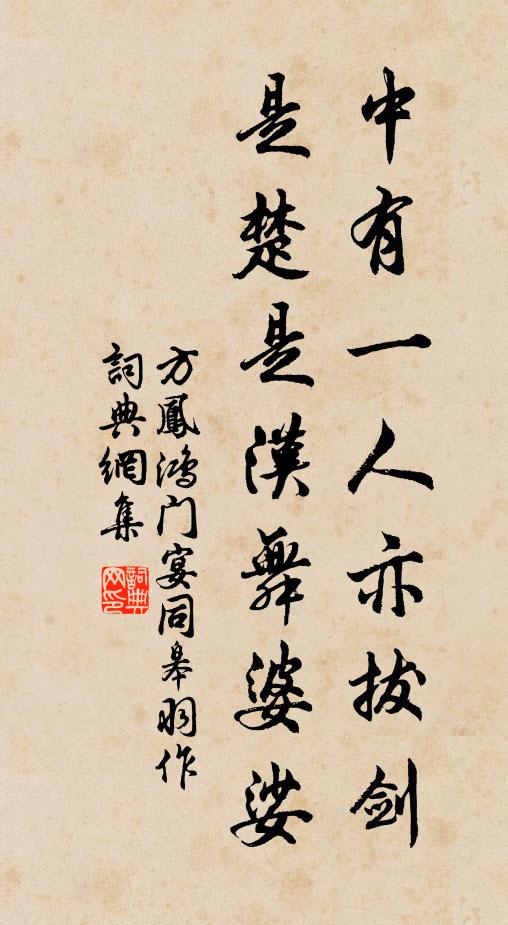 中有一人亦拔剑
是楚是漢舞婆娑
方鳳鴻门宴同皋羽作
詞典網集
詞典
网印